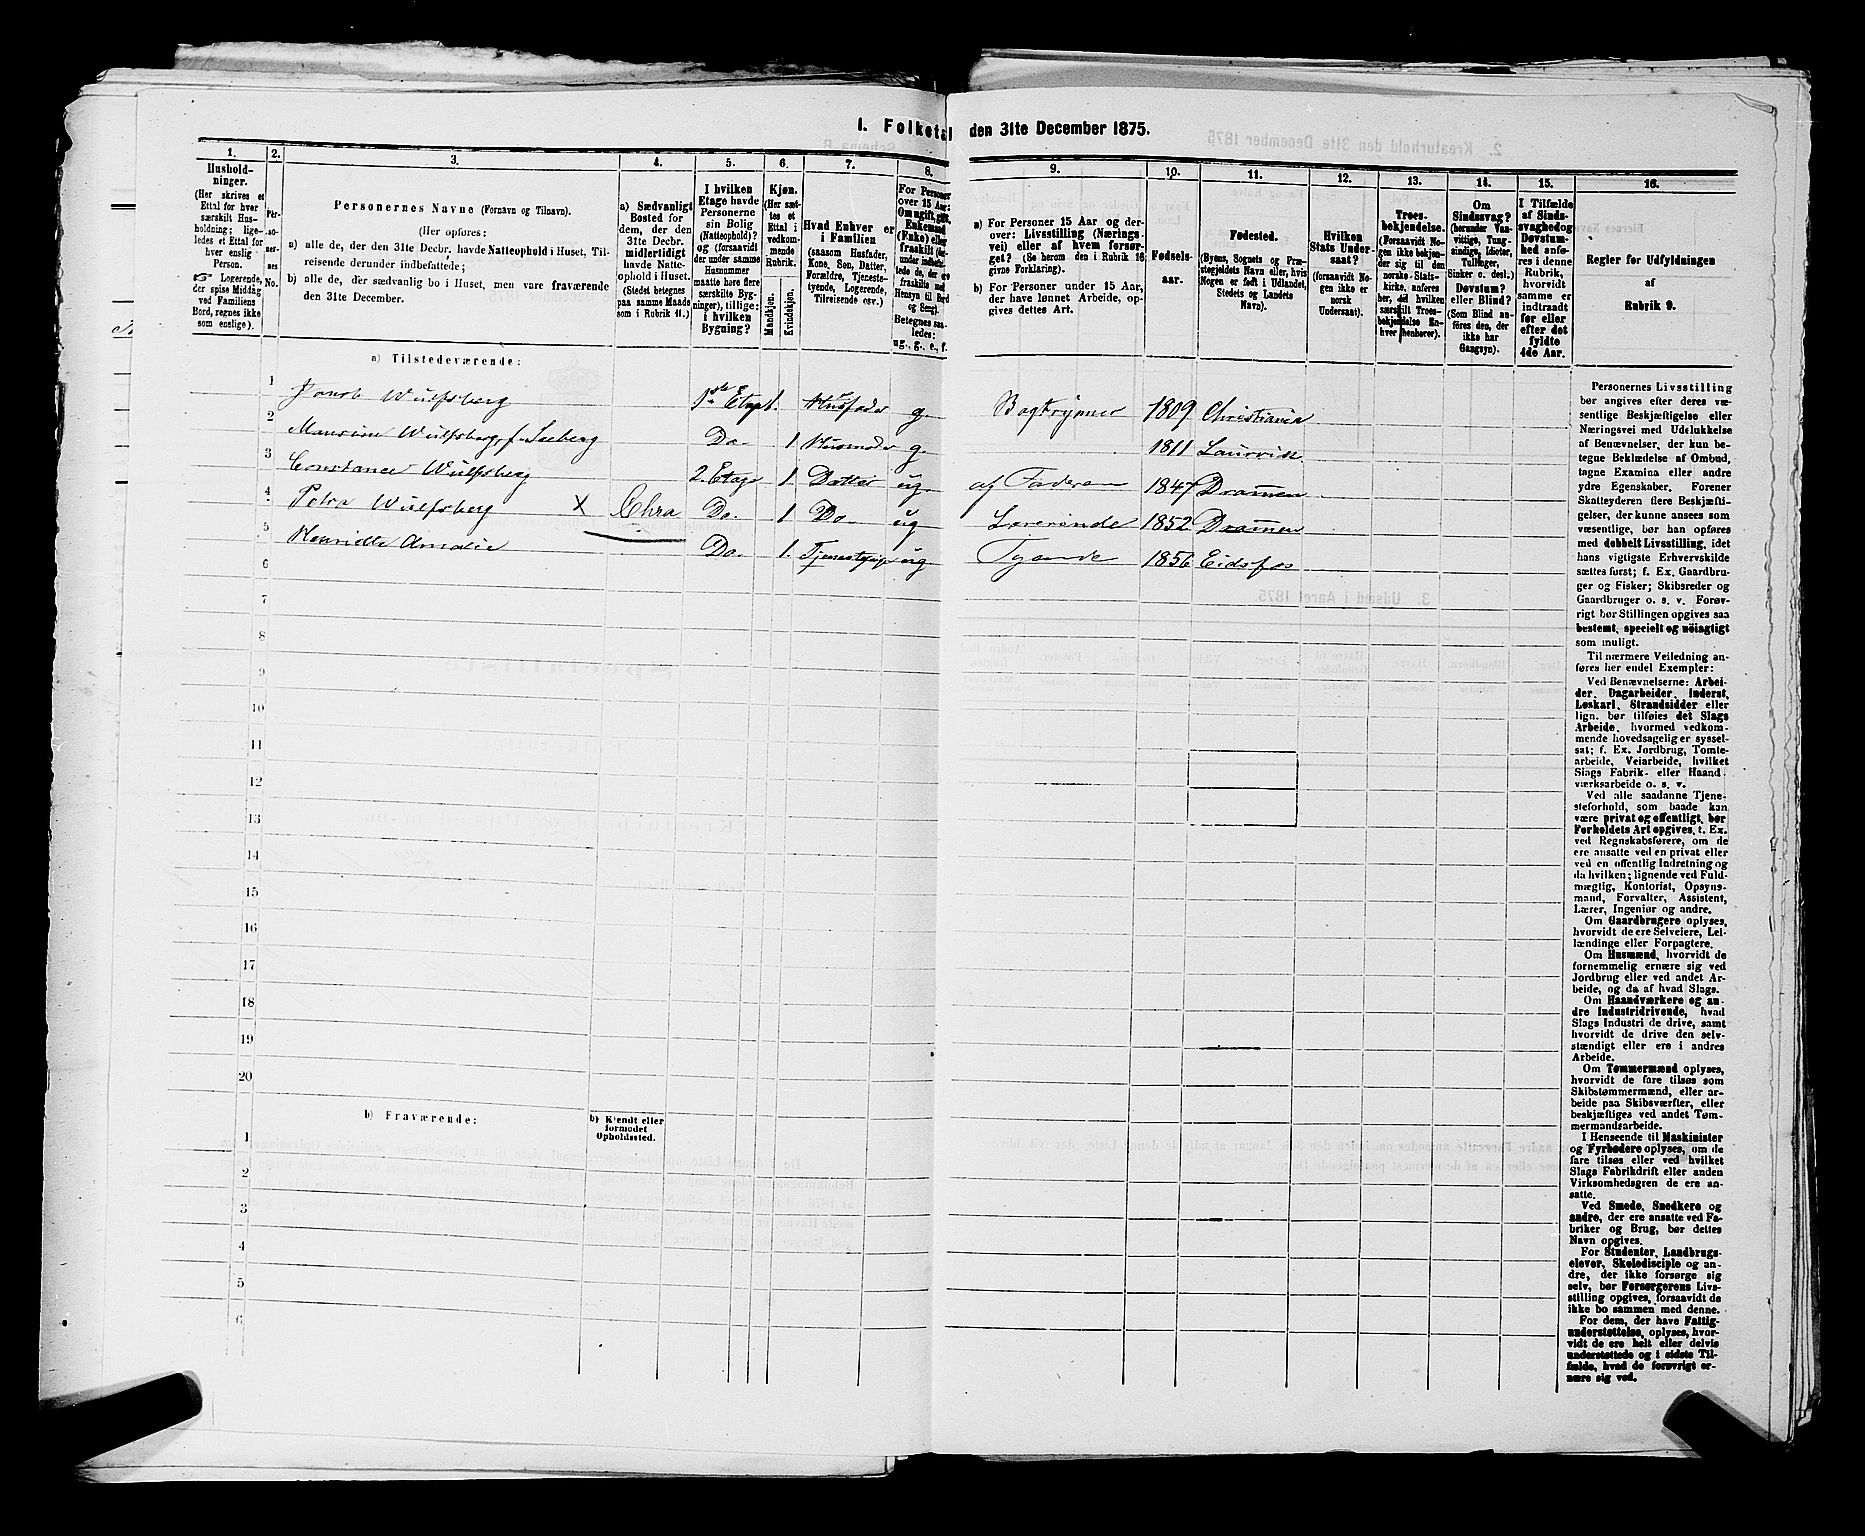 I. Folketal den 31te December 1875.
1. 2. 3. 4. 5. 6. 7. 8. 9. 10. 11. 12. 13. 14. 15. 16.
Hushold-
ninger.
(Her skrives et
Ettal for hver
særskilt Hus-
holdning; lige-
ledes et Ettal for
hver enslig
Person.
☞ Logerende,
der spise Middag
ved Familiens
Bord, regnes ikke
som enslige).
Per-
so-
ner-
nes
No.
Personernes Navne (Fornavn og Tilnavn).
(Her opføres:
a) alle de, der den 31te Decbr. havde Natteophold i Huset, Til-
reisende derunder indbefattede;
b) alle de, der sædvanlig bo i Huset, men vare fraværende
den 31te December.
a) Sædvanligt
Bosted for
dem, der den
31te Decbr.
midlertidigt
havde Natte-
ophold i Huset.
(Stedet betegnes
paa samme Maade
som i Rubrik 11.)
I hvilken
Etage havde
Personerne
sin Bolig
(Natteophold)?
og (forsaavidt
der under samme
Husnummer
maatte høre flere
særskilte Byg-
ninger), tillige:
i hvilken
Bygning?
Kjøn.
(Her sæt-
tes et
Ettal i
vedkom-
mende
Rubrik.
Mandkjøn.
Kvindekjøn.
Hvad Enhver er
i Familien
(saasom Husfader,
Kone, Søn, Datter,
Forældre, Tjeneste-
tyende, Logerende,
Tilreisende osv.)
For Personer
over 15 Aar:
Om ugift, gift,
Enkemand
(Enke) eller
fraskilt
Betegnes saa-
ledes:
ug., g., e., f.
a) For Personer 15 Aar og der-
over: Livsstilling (Nærings-
vei) eller af hvem forsør-
get? (Se herom den i Rubrik 16
givne Forklaring).
b) For Personer under 15 Aar,
der have lønnet Arbeide, op-
gives dettes Art.
Fødsels-
aar.
Fødested.
(Byens, Sognets og Præ-
stegjeldets Navn eller, hvis
Nogen er født i Udlandet,
Stedets og Landets
Navn).
Hvilken
Stats Under-
saat?
(forsaavidt No-
gen ikke er
norsk
Undersaat).
Troes-
bekjendelse.
(Forsaavidt No-
gen ikke bekjen-
der sig til den
norske Stats-
kirke, anføres
her, til hvilken
særskilt Troes-
bekjendelse En-
hver henhører).
Om
Sindssvag?
(herunder Van-
vittige, Tung-
sindige, Idioter,
Tullinger,
Sinker o. desl.)
Døvstum?
eller Blind?
(Som Blind an-
føres den, der
ikke har
Gangsyn).
I Tilfælde
af Sinds-
svaghed og
Døvstum-
hed anfø-
res i denne
Rubrik,
hvorvidt
samme er
indtraadt
før eller
efter det
fyldte
4de Aar.
Regler for Udfyldningen
af
Rubrik 9.
a) Tilstedeværende:
1 Jacob Wulfsberg 1ste Etage 1. Husfader g. Bogtrykker 1809 Christiania
2 Wulfsberg, f. Seeberg Do. 1 Husmoder g. 1811 Laurvik
3 Constance Wulfsberg 2. Etage 1 Datter ug. af Faderen 1847 Drammen
4 Petra Wulfsberg X Chra Do. 1 Do. ug. Lærerinde 1852 Drammen
5 Henriette Amalie Do. 1. ug. Tyende 1856 Eidsfos
6
7
8
9
10
11
12
13
14
15
16
17
18
19
20
b) Fraværende:
b) Kjendt eller
formodet
Opholdssted.
1
2
3
4
5
6
Personernes Livsstilling
bør angives efter deres væ-
sentlige Beskjæftigelse eller
Næringsvei med Udelukkelse
af Benævnelser, der kun be-
tegne Beklædelse af Ombud,
tagne Examina eller andre
ydre Egenskaber. Forener
Skatteyderen flere Beskjæfti-
gelser, der kunne ansees som
væsentlige, bør han opføres
med dobbelt Livsstilling, idet
hans vigtigste Erhvervskilde
sættes først; f. Ex. Gaardbru-
ger og Fisker; Skibsreder og
Gaardbruger o. s. v. Forøv-
rigt bør Stillingen opgives saa
bestemt, specielt og nøiagtigt
som muligt.
Til nærmere Veiledning an-
føres her endel Exempler:
Ved Benævnelserne: Arbei-
der, Dagarbeider, Inderst,
Løskarl, Strandsidder eller
lign. bør tilføies det Slags
Arbeide, hvormed vedkom-
mende hovedsagelig er syssel-
sat; f. Ex. Jordbrug, Tomte-
arbeide, Veiarbeide, hvilket
Slags Fabrik- eller Haand-
værksarbeide o. s. v.
Ved alle saadanne Tjene-
steforhold, som baade kan
være privat og offentligt, bør
Forholdets Art opgives, t. Ex.
ved Regnskabsførere, om de
ere ansatte ved en privat eller
ved en offentlig Indretning og
da hvilken; lignende ved Fuld-
mægtig, Kontorist, Opsyns-
mand, Forvalter, Assistent,
Lærer, Ingeniør og andre.
Om Gaardbrugere oplyses,
hvorvidt de ere Selveiere, Lei-
lændinge eller Forpagtere.
Om Husmænd, hvorvidt de
fornemmelig ernære sig ved
Jordbrug eller ved andet Ar-
beide, og da af hvad Slags.
Om Haandværkere og an-
dre Industridrivende, hvad
Slags Industri de drive, samt
hvorvidt de drive den selv-
stændigt eller ere i andres
Arbeide.
Om Tømmermænd oplyses,
hvorvidt de fare tilsøs som
Skibstømmermænd, eller ar-
beide paa Skibsværfter, eller
beskjæftiges ved andet Tøm-
mermandsarbeide.
I Henseende til Maskinister
og Fyrbødere oplyses, om de
fare tilsøs eller ved hvilket
Slags Fabrikdrift eller anden
Virksomhedsgren de ere an-
satte.
Ved Smede, Snedkere og
andre, der ere ansatte ved Fa-
briker og Brug, bør dettes
Navn opgives.
For Studenter, Landbrugs-
elever, Skoledisciple og an-
dre, der ikke forsørge sig
selv, bør Forsørgerens Livs-
stilling opgives, forsaavidt de
ikke bo sammen med denne.
For dem, der have Fattig-
understøttelse, oplyses, hvor-
vidt de ere helt eller delvis
understøttede og i sidste Til-
fælde, hvad de forøvrigt er-
nære sig ved.